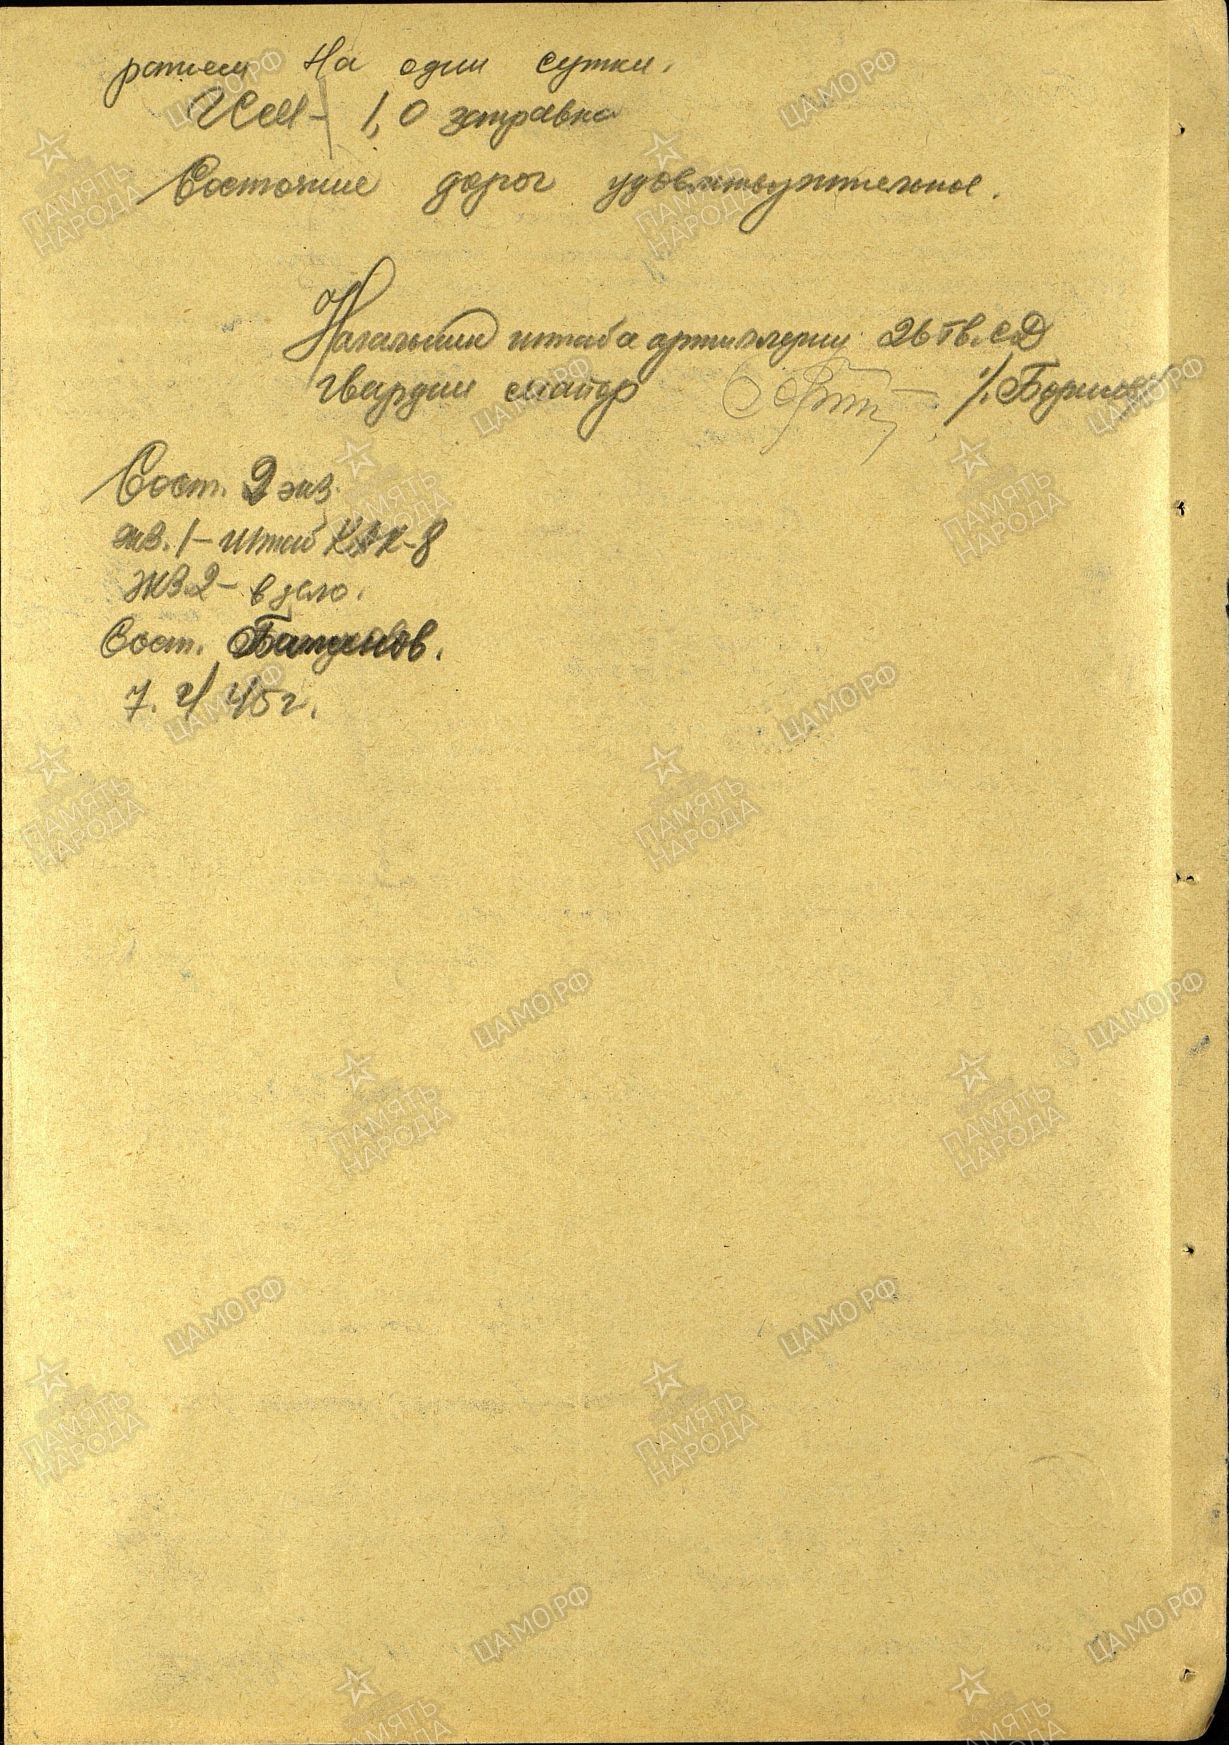 рацием на один сутки.
ГСМ - 1,0 заправка
Состояние дорог удовлетворительное.
Начальник штаба артиллерии 26 Гв. СД
гвардии майор /Борисов
Сост. 2 экз.
экз. 1 - штаб КАК-8
экз 2 - в дело.
Сост. Баженов.
7. 4 45 г.
ПАМЯТЬ НАРОДА
ЦАМО.РФ